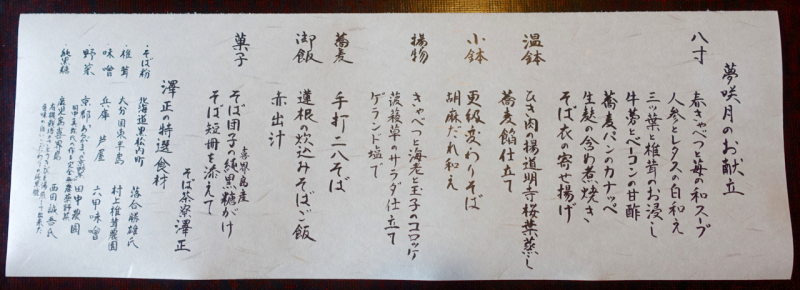 夢咲月のお献立
八寸
春きゃべつと苺の和スープ
人参とレタスの白和え
三ッ葉と椎茸のお浸し
牛蒡とベーコンの甘酢
蕎麦パンのカナッペ
生麩の含め煮焼き
そば衣の寄せ揚げ
温鉢
ひき肉揚道明寺桜葉蒸し
蕎麦餡仕立て
小鉢
更級変わりそば
胡麻だれ和え
揚物
きゃべつと海老と玉子のコロッケ
菠薐草のサラダ仕立て
ゲランド塩で
蕎麦
手打二八そば
御飯
蓮根の炊込みそばご飯
赤出汁
菓子
喜界島産
そば団子の純黒糖がけ
そば短冊を添えて
そば茶寮澤正
澤正の特選食材
・そば粉 北海道黒松内町 落合勝雄氏
・椎茸 大分国東半島 村上椎茸農園
・味噌 兵庫 芦屋 六甲味噌
・野菜 京都 田中農園
・純黒糖 鹿児島喜界島